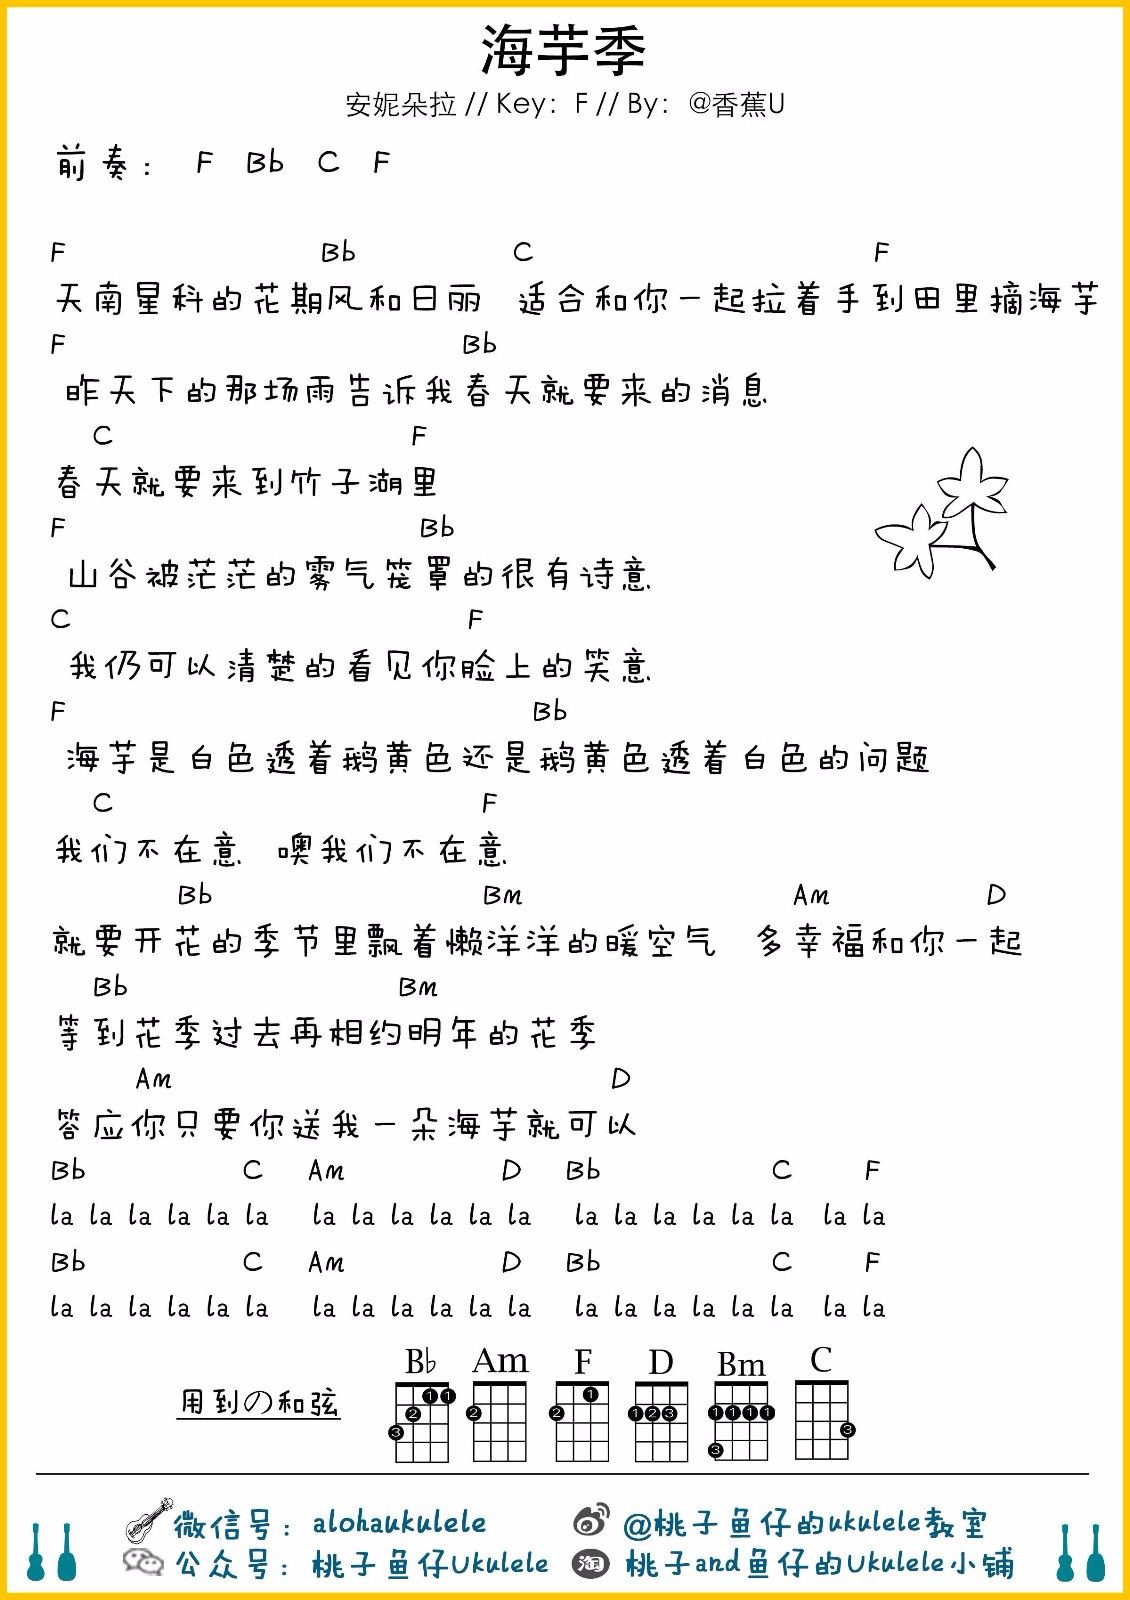 海芋季
安妮朵拉 // Key：F // By：@香蕉U
前奏： F Bb C F
F Bb C F
天南星科的花期风和日丽 适合和你一起拉着手到田里摘海芋
F Bb
昨天下的那场雨告诉我春天就要来的消息
C F
春天就要来到竹子湖里
F Bb
山谷被茫茫的雾气笼罩的很有诗意
C F
我仍可以清楚的看见你脸上的笑意
F Bb
海芋是白色透着鹅黄色还是鹅黄色透着白色的问题
C F
我们不在意 噢我们不在意
Bb Bm Am D
就要开花的季节里飘着懒洋洋的暖空气 多幸福和你一起
Bb Bm
等到花季过去再相约明年的花季
Am D
答应你只要你送我一朵海芋就可以
Bb C Am D Bb C F
la la la la la la la la la la la la la la la la la la la la
Bb C Am D Bb C F
la la la la la la la la la la la la la la la la la la la la
B♭ Am F D Bm C
用到の和弦
1 1 2 3 2 1 2 1 2 3 1 1 1 1 3 3
微信号：alohaukulele @桃子鱼仔的ukulele教室
公众号：桃子鱼仔Ukulele 淘 桃子and鱼仔的Ukulele小铺